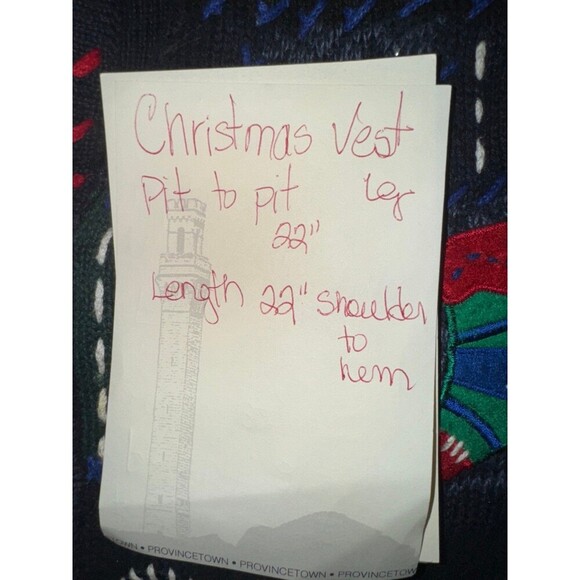 Christmas Vest
Pit to pit Lg
22"
Length 22" shoulder
to
hem
TOWN • PROVINCETOWN • PROVINCETOWN • PROVINCETOWN